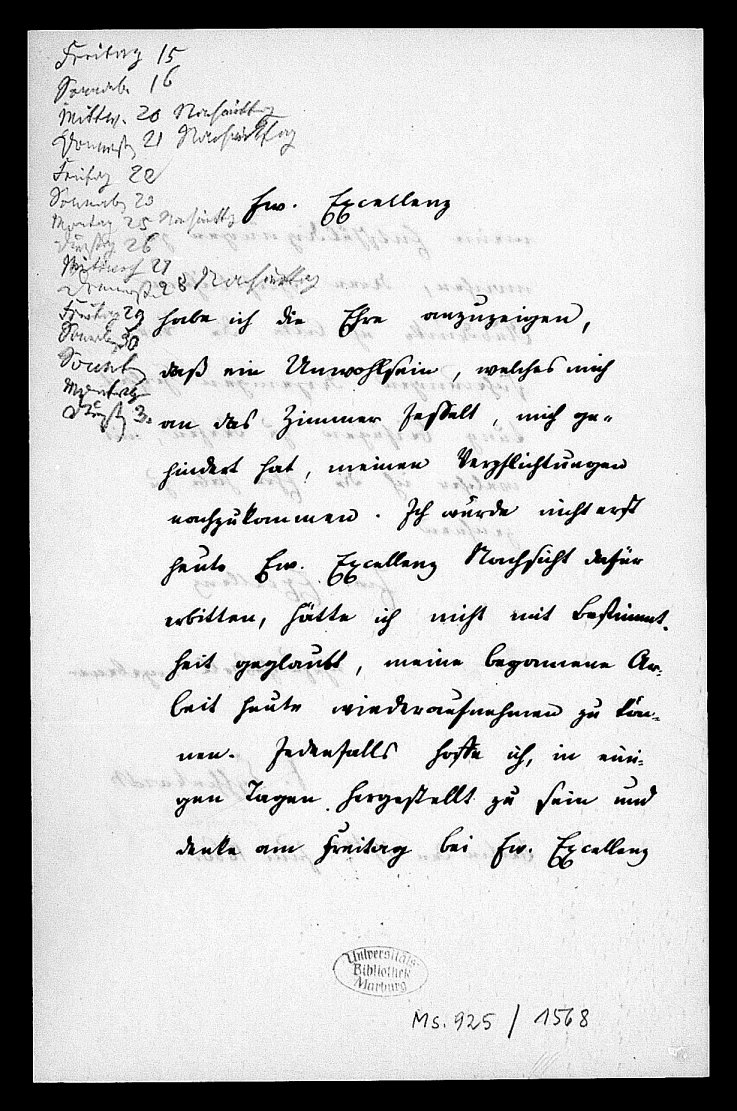 Freitag 15
Sonnab. 16
Mittw. 20 Nachmittag
Donnerst 21 Nachmittag
Freitag 22
Sonnab 23
Montag 25 Nachmittg
Dienstag 26
Mittwoch 27
Donnerst 28 Nachmittag
Freitag 29
Sonnab 30
Sonnt
Montag
Dienstg
Ew. Excellenz
habe ich die Ehre anzuzeigen,
daß ein Unwohlsein, welches mich
an das Zimmer fesselt, mich ge-
hindert hat, meinen Verpflichtungen
nachzukommen. Ich würde nicht erst
heute Ew. Excellenz Nachsicht dafür
erbitten, hätte ich nicht mit Bestimmt-
heit geglaubt, meine begonnene Ar-
beit heute wiederaufnehmen zu kön-
nen. Jedenfalls hoffe ich, in eini-
gen Tagen hergestellt zu sein und
denke am Freitag bei Ew. Excellenz
Universitäts-
Bibliothek
Marburg
Ms. 925 / 1568